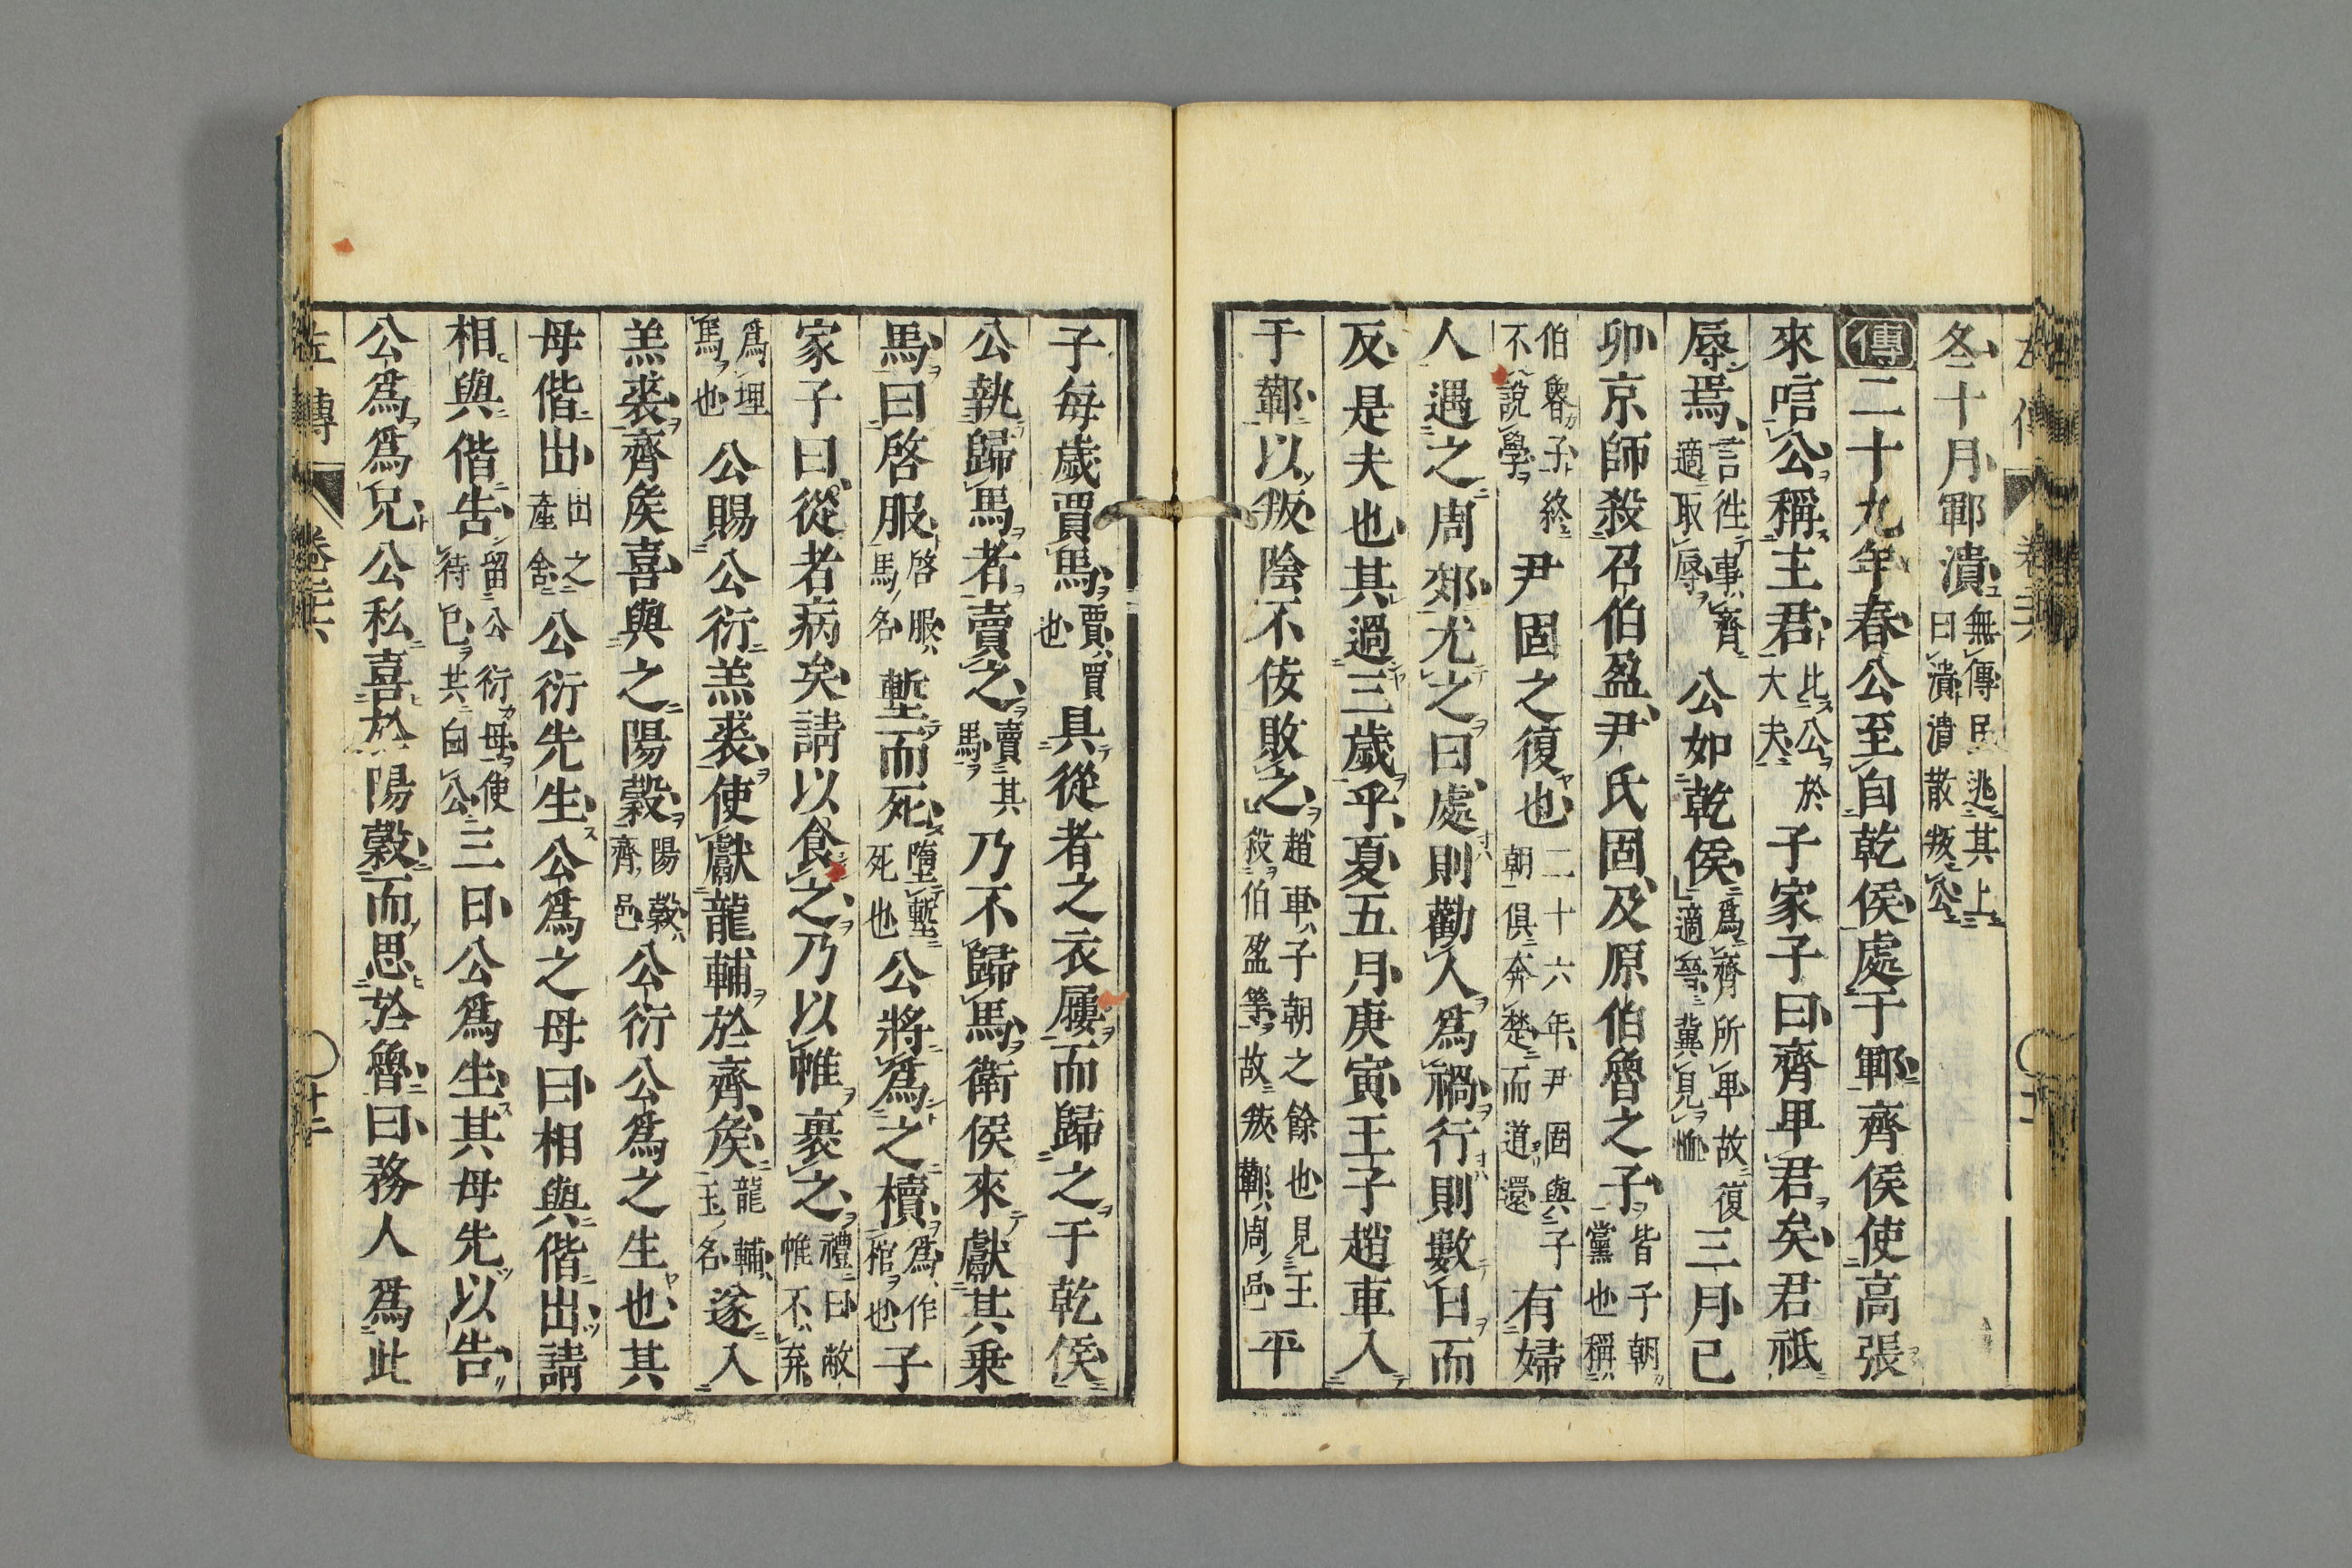 冬十月鄆潰無傳民逃其上曰潰潰散叛公
傳二十九年春公至自乾侯處于鄆齊侯使高張
來唁公稱主君比公於大夫子家子曰齊卑君矣君祇
辱焉言徃事齊適取辱公如乾侯爲齊所卑故復適晉冀見恤三月己
卯京師殺召伯盈尹氏固及原伯魯之子皆子朝黨也稱
伯魯子終不說學尹固之復也二十六年尹固與子朝俱奔楚而道還有婦
人遇之周郊尤之曰處則勸人爲禍行則數日而
反是夫也其過三歲乎夏五月庚寅王子趙車入
于鄻以叛陰不佞敗之趙車子朝之餘也見王殺伯盈等故叛鄻周邑平
子每歲賈馬賈買也具從者之衣屨而歸之于乾侯
公執歸馬者賣之賣其馬乃不歸馬衛侯來獻其乗
馬曰啓服啓服馬名塹而死墮塹死也公將爲之櫝爲作棺也子
家子曰從者病矣請以食之乃以帷裹之禮曰敝帷不弃
爲埋馬也公賜公衍羔裘使獻龍輔於齊侯龍輔玉名遂入
羔裘齊侯喜與之陽穀陽穀齊邑公衍公爲之生也其
母偕出出之產舍公衍先生公爲之母曰相與偕出請
相與偕告留公衍母使待己共白公三日公爲生其母先以告
公爲爲兄公私喜於陽穀而思於魯曰務人爲此
左傳 卷二十六 十二